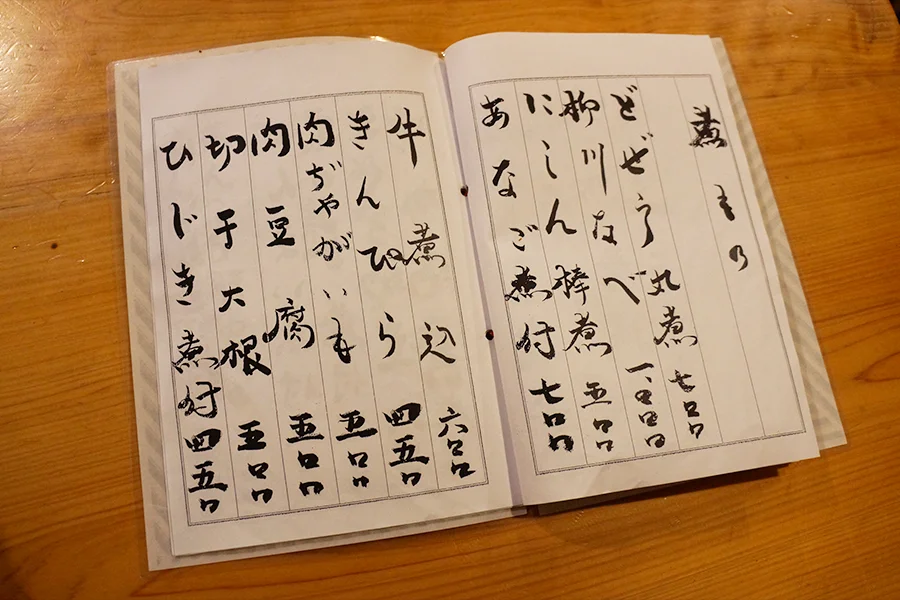 煮もの
どぜう丸煮 七〇〇
柳川なべ 一、〇〇〇
にしん棒煮 五〇〇
あなご煮付 七〇〇
牛煮込 六〇〇
きんぴら 四五〇
肉ぢゃがいも 五〇〇
肉豆腐 五〇〇
切干大根 五〇〇
ひじき煮付 四五〇